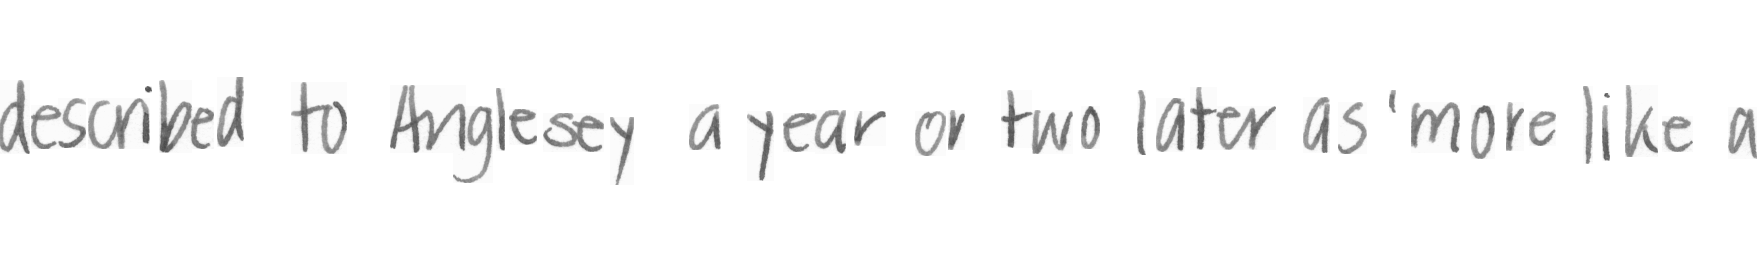 described to Anglesey a year or two later as 'more like a